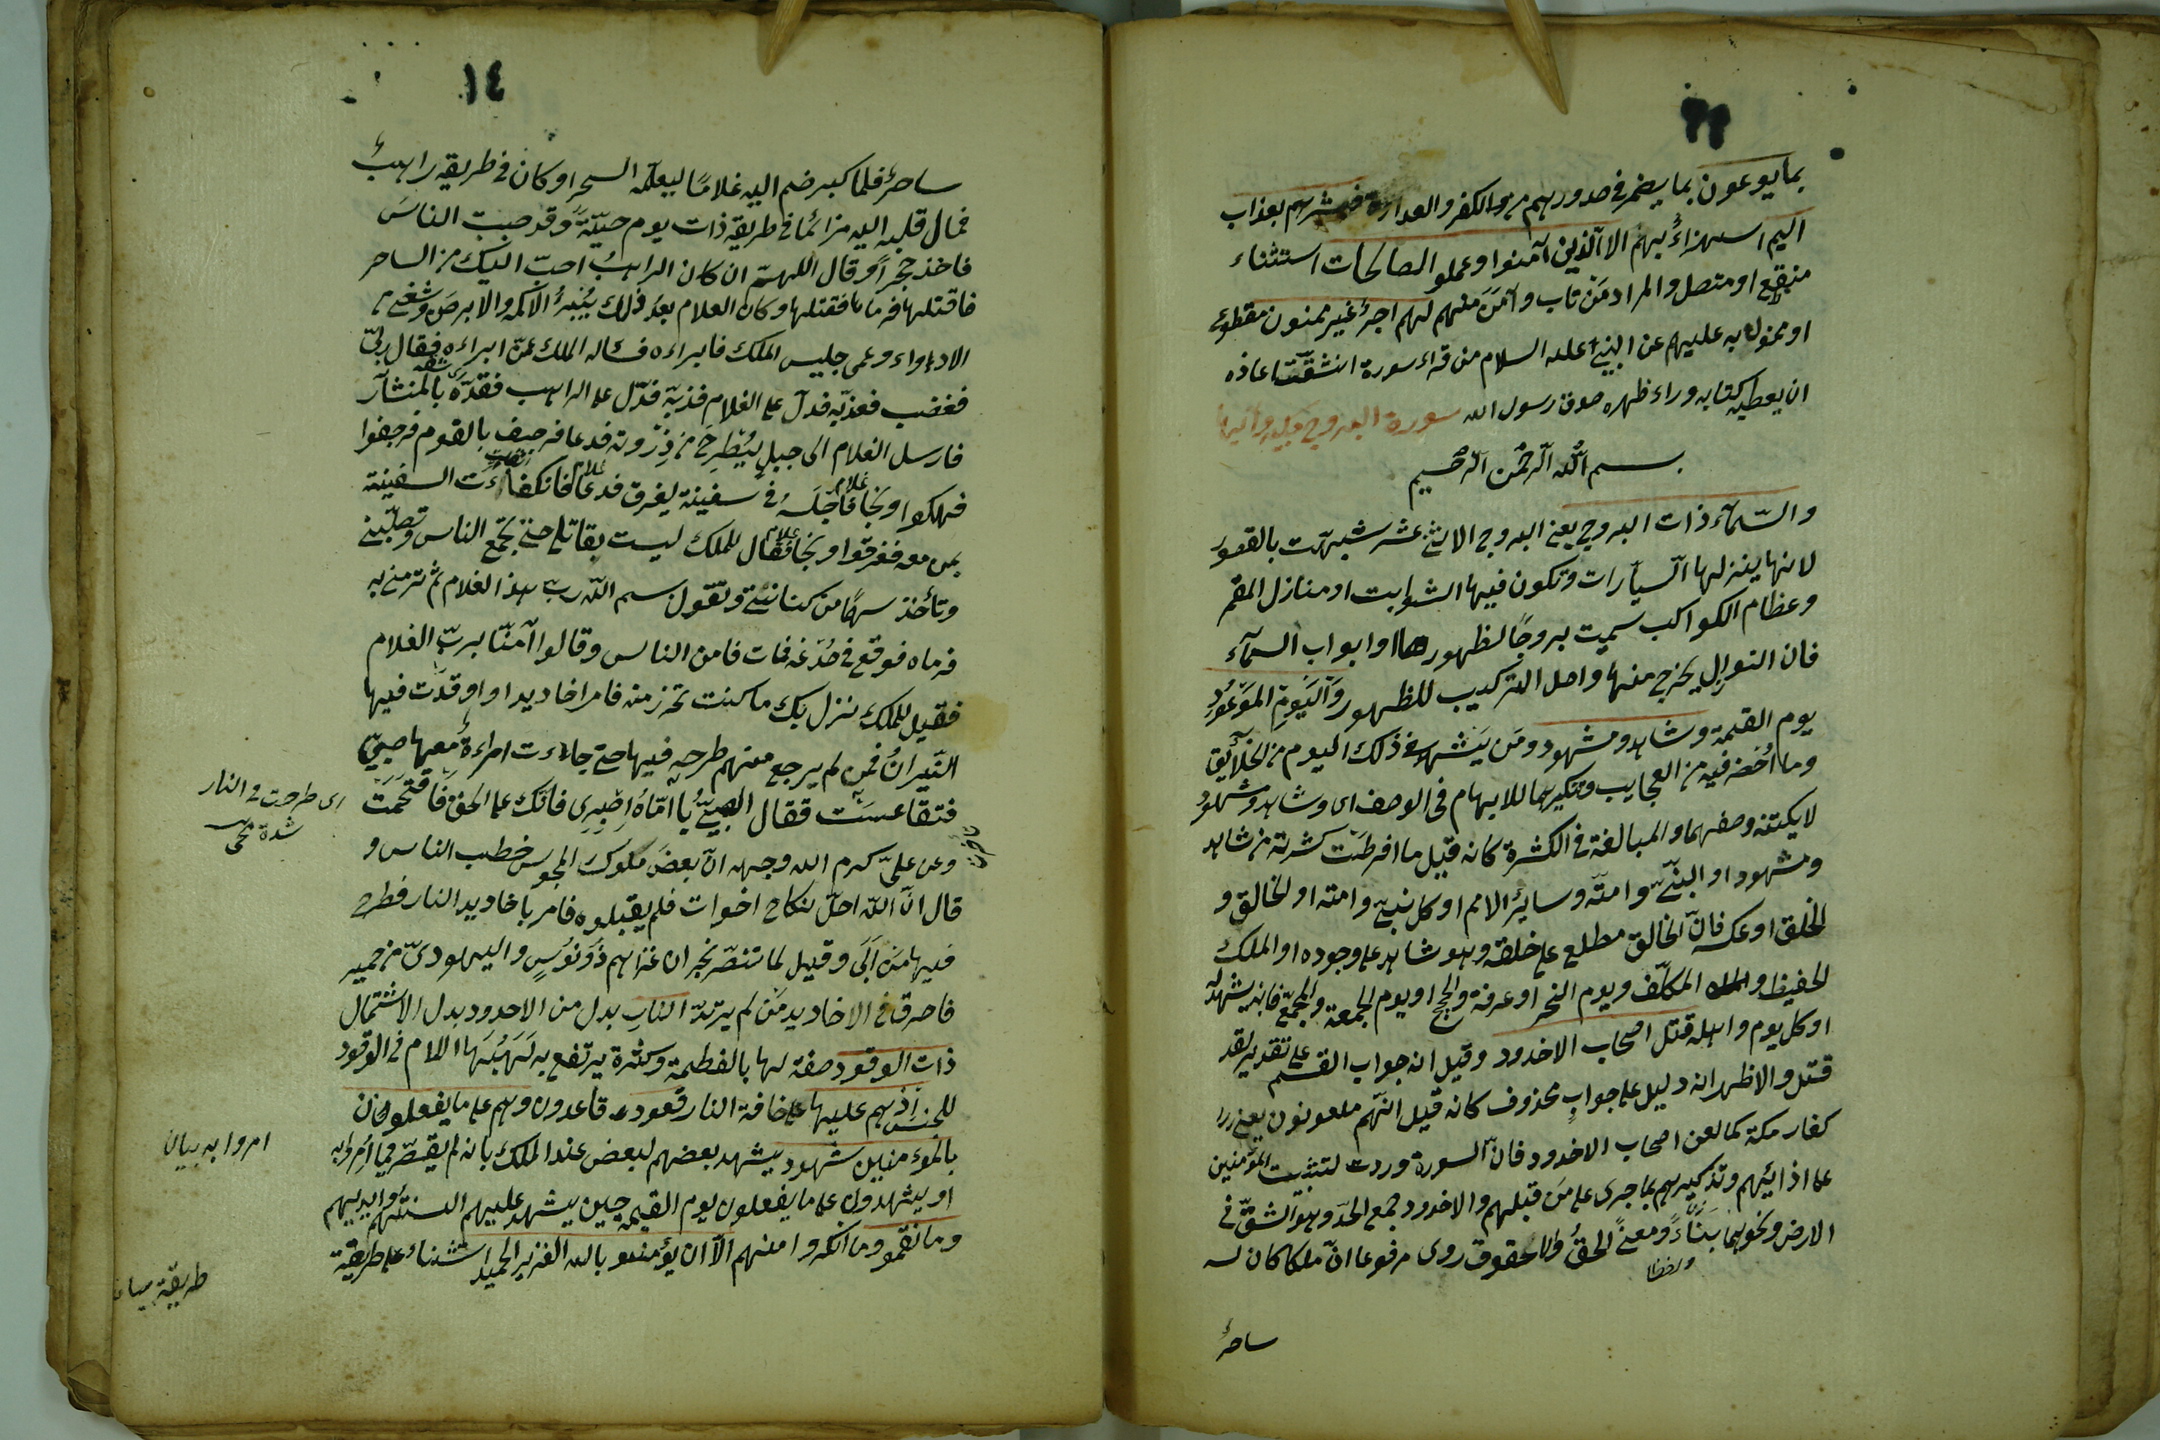 بما يوعون بما يضمرون في صدورهم من الكفر والعداوة فبشرهم بعذاب
اليم استهزاءٌ بهم الا الذين آمنوا وعملوا الصالحات استثناء
منقطع او متصل والمراد من تاب وآمن منهم لهم اجرٌ غير ممنون مقطوع
او ممنون به عليهم عن النبي عليه السلام من قراء سورة انشقت اعاذه
ان يعطيه كتابه وراء ظهره صدق رسول الله سورة البروج
بسم الله الرحمن الرحيم
والسماء ذات البروج يعني البروج الاثني عشر شبهت بالقصور
لانها ينزلها السيارات وتكون فيها الثوابت او منازل القمر
وعظام الكواكب سميت بروجًا لظهورها او ابواب السماء
فان النوازل يخرج منها واصل التركيب للظهور واليوم الموعود
يوم القيمة وشاهد ومشهود ومن يشهد في ذلك اليوم من الخلائق
وما احضر فيه من العجايب وتنكيرهما للابهام في الوصف اى وشاهد ومشهود
لا يكتنه وصفهما والمبالغة في الكثرة كانه قيل ما افرطت كثرته من شاهد
ومشهود او النبي وامته وساير الامم او كل نبي وامته او الخالق و
الخلق او عكسه فان الخالق مطلع على خلقه وهو شاهد على وجوده او الملك
الحفيظ والمكلف ويوم النحر او عرفة والحج او يوم الجمعة والمجمع فانه يشهد له
او كل يوم واهله قتل اصحاب الاخدود وقيل ان جواب القسم على تقدير لقد
قتل والاظهر انه دليل على جواب محذوف كانه قيل انهم ملعونون يعني
كفار مكة كما لعن اصحاب الاخدود فان السورة وردت لتثبيت المؤمنين
على اذائهم وتذكيرهم بما جرى على من قبلهم والاخدود جمع الخد وهو الشق في
الارض ونحوهما بناءً ومعنىً الحق والاحقوق روى مرفوعا ان ملكا كان له
ساحرٌ
١٤
ساحرٌ فلما كبر ضم اليه غلامًا ليعلمه السحر وكان في طريقه راهبٌ
فمال قلبه اليه فرائ في طريقه ذات يوم حيّةً وقد حبست الناسَ
فاخذ حجرًا وقال اللهم ان كان الراهبُ احب اليك من الساحر
فاقتلها فرماها فقتلها وكان الغلام بعد ذلك يُبرئُ الاكمه والابرصَ وشفى من
الادواء وعمى جليس الملك فابراءه فساله الملك عمن ابراءه فقال ربّي
فغضب فعذبه فدل على الغلام فعذبه فدل على الراهب فقدّه بالمنشار
فارسل الغلام الى جبل ليُطرح من ذِرْوته فدعا فرجف بالقوم فرجفوا
فهلكوا ونجا فاجلسه في سفينة ليغرق فدعا فانكفاءت السفينة
بمن معه فغرقوا ونجا فقال للملك لست بقاتلي حتى تجمع الناس وتصلبني
وتأخذ سهمًا من كنانتي وتقول بسم الله رب هذا الغلام ثم ترمنى به
فرماه فوقع في صُدْغه فمات فامن الناس وقالوا آمنّا بربّ الغلام
فقيل للملك نزل بك ما كنت تحرز منه فامر اخاديدا واوقدت فيها
النيرانُ فمن لم يرجع منهم طرحه فيها حتى جاءت امراءةٌ معها صبيّ
فتقاعست فقال الصبيُّ يا امّاهُ اصْبِرى فانّك على الحق فاقتحمت
وعن عليّ كرم الله وجهه انّ بعضَ ملوك المجوس خطب الناس و
قال انّ الله احلّ نكاح اخوات فلم يقبلوه فامر باخاديد النار فطرح
فيها من اَبَى وقيل لما تنصر نجران غزاهم ذو نوس واليهوديّ من حمير
فاحرق في الاخاديد من لم يرتدّ النار بدل من الاخدود بدل الاشتمال
ذات الوقود صفة لها بالعظمة وكثرة يرتفع به لَهَبُهَا اللام في الوقود
للجنس اذ هم عليها على حافة النار قعود قاعدون وهم على ما يفعلون
بالمؤمنين شهود يشهد بعضهم لبعض عند الملك بانه لم يقصر فيما اُمروا به
او يشهدون على ما يفعلون يوم القيمة حين يشهد عليهم السنتهم وايديهم
وما نقموا وما انكروا منهم الا ان يؤمنوا بالله العزيز الحميد استثناء على طريقة
اى طرحت في النار
امروا به بيان